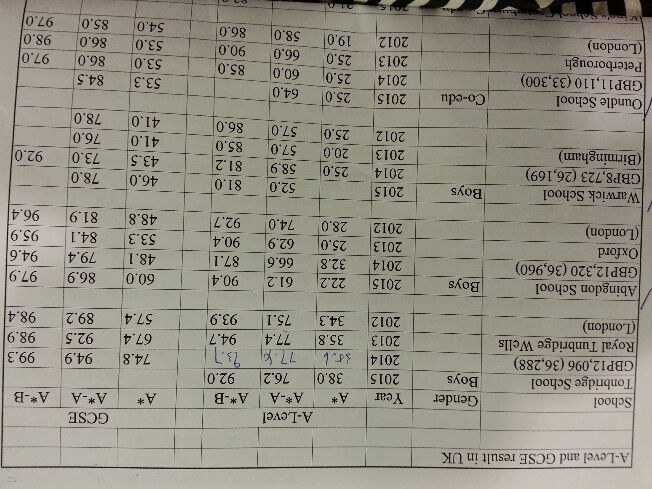 A-Level and GCSE result in UK
A-Level GCSE
School Gender Year A* A*-A A*-B A* A*-A A*-B
Tonbridge School Boys 2015 38.0 76.2 92.0
GBP12,096 (36,288) 2014 77.6 93.7 74.8 94.9 99.3
Royal Tunbridge Wells 2013 35.8 77.4 94.7 67.4 92.5 98.9
(London) 2012 34.3 75.1 93.9 57.4 89.2 98.4
Abingdon School Boys 2015 22.2 61.2 90.4 60.0 86.9 97.9
GBP12,320 (36,960) 2014 32.8 66.6 87.1 48.1 79.4 94.6
Oxford 2013 25.0 62.9 90.4 53.3 84.1 95.9
(London) 2012 28.0 74.0 92.7 48.8 81.9 96.4
Warwick School Boys 2015 52.0 81.0 46.0 78.0
GBP8,723 (26,169) 2014 25.0 58.9 81.2 43.5 73.0 92.0
(Birmingham) 2013 20.0 57.0 85.0 41.0 76.0
2012 25.0 57.0 86.0 41.0 78.0
Oundle School Co-edu 2015 25.0 64.0
GBP11,110 (33,300) 2014 25.0 60.0 85.0 53.3 84.5
Peterborough 2013 25.0 66.0 90.0 53.0 86.0 97.0
(London) 2012 19.0 58.0 86.0 53.0 86.0 98.0
King's School 2015 54.0 85.0 97.0